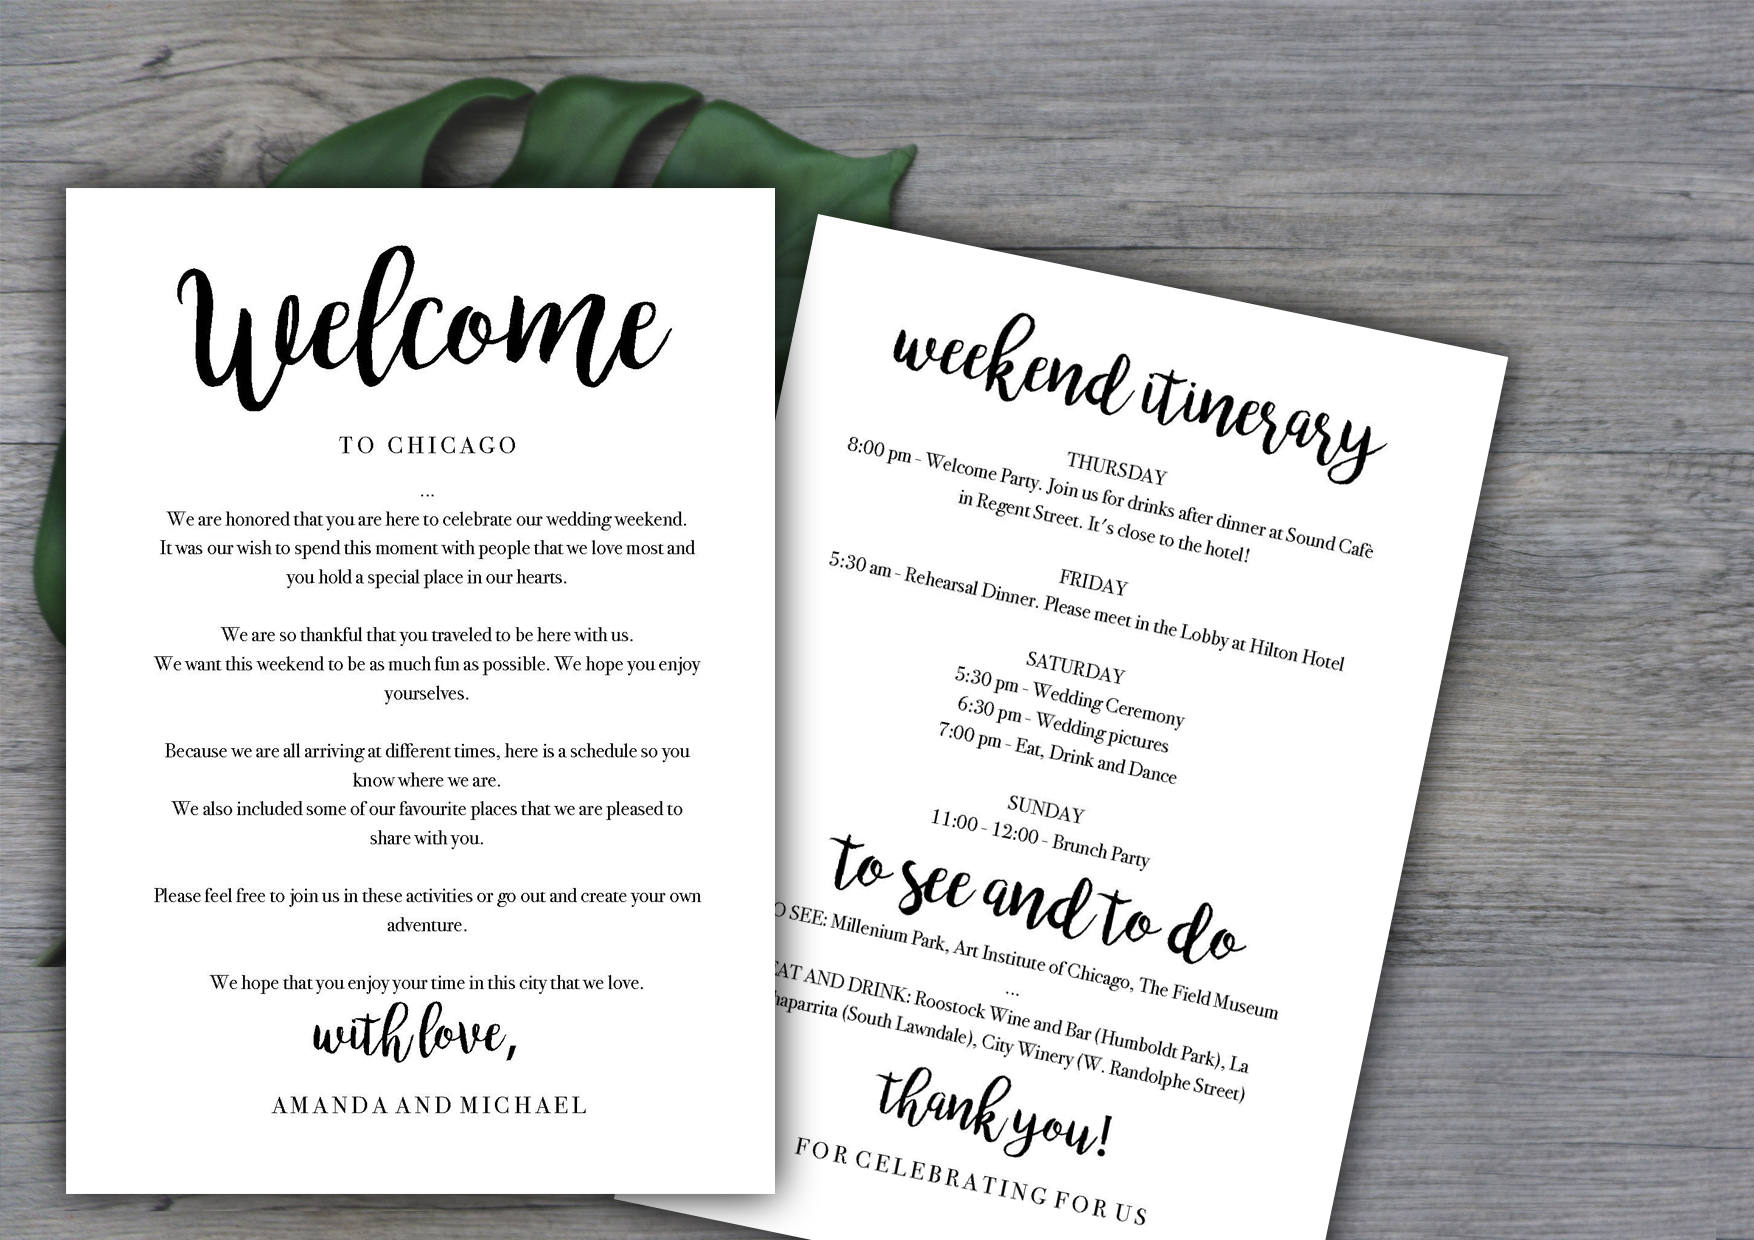 Welcome
TO CHICAGO
...
We are honored that you are here to celebrate our wedding weekend.
It was our wish to spend this moment with people that we love most and
you hold a special place in our hearts.
We are so thankful that you traveled to be here with us.
We want this weekend to be as much fun as possible. We hope you enjoy
yourselves.
Because we are all arriving at different times, here is a schedule so you
know where we are.
We also included some of our favourite places that we are pleased to
share with you.
Please feel free to join us in these activities or go out and create your own
adventure.
We hope that you enjoy your time in this city that we love.
with love,
AMANDA AND MICHAEL
weekend itinerary
THURSDAY
8:00 pm - Welcome Party. Join us for drinks after dinner at Sound Cafè
in Regent Street. It's close to the hotel!
FRIDAY
5:30 am - Rehearsal Dinner. Please meet in the Lobby at Hilton Hotel
SATURDAY
5:30 pm - Wedding Ceremony
6:30 pm - Wedding pictures
7:00 pm - Eat, Drink and Dance
SUNDAY
11:00 - 12:00 - Brunch Party
to see and to do
O SEE: Millenium Park, Art Institute of Chicago, The Field Museum
...
EAT AND DRINK: Roostock Wine and Bar (Humboldt Park), La
haparrita (South Lawndale), City Winery (W. Randolphe Street)
thank you!
FOR CELEBRATING FOR US